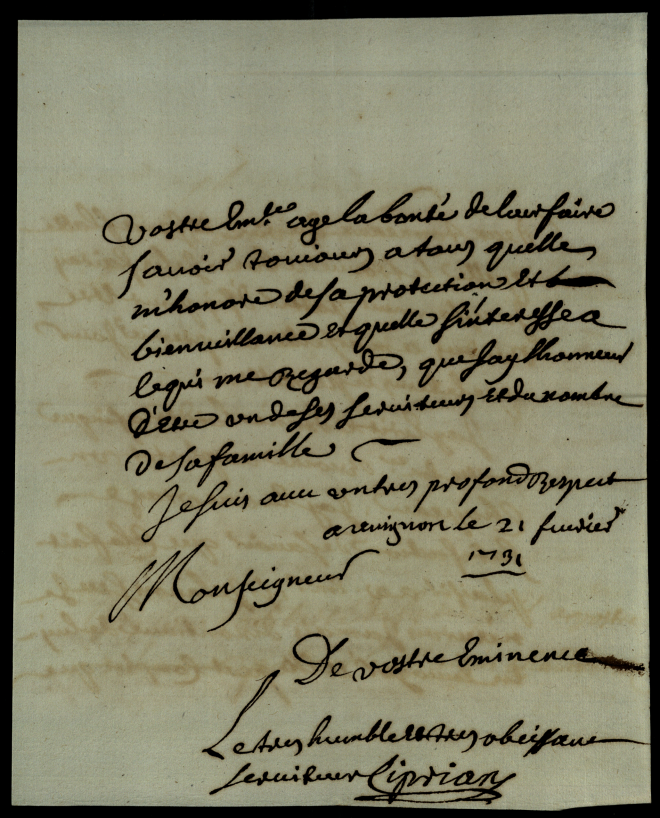 Vostre Em.ce aye la bonté de leur faire
sauoir touiours a tous quelle
m'honore de sa protection et
bienueillance et quelle s'interesse a
ce qui me Regarde, que iay lhonneur
d'Etre un de ses seruiteurs et du nombre
De sa famille
Je suis auec un tres profond Respect
a reuignon le 21 feurier
1731
Monseigneur
De vostre Eminence
Le tres humble et tres obeissant
seruiteur Ciprian